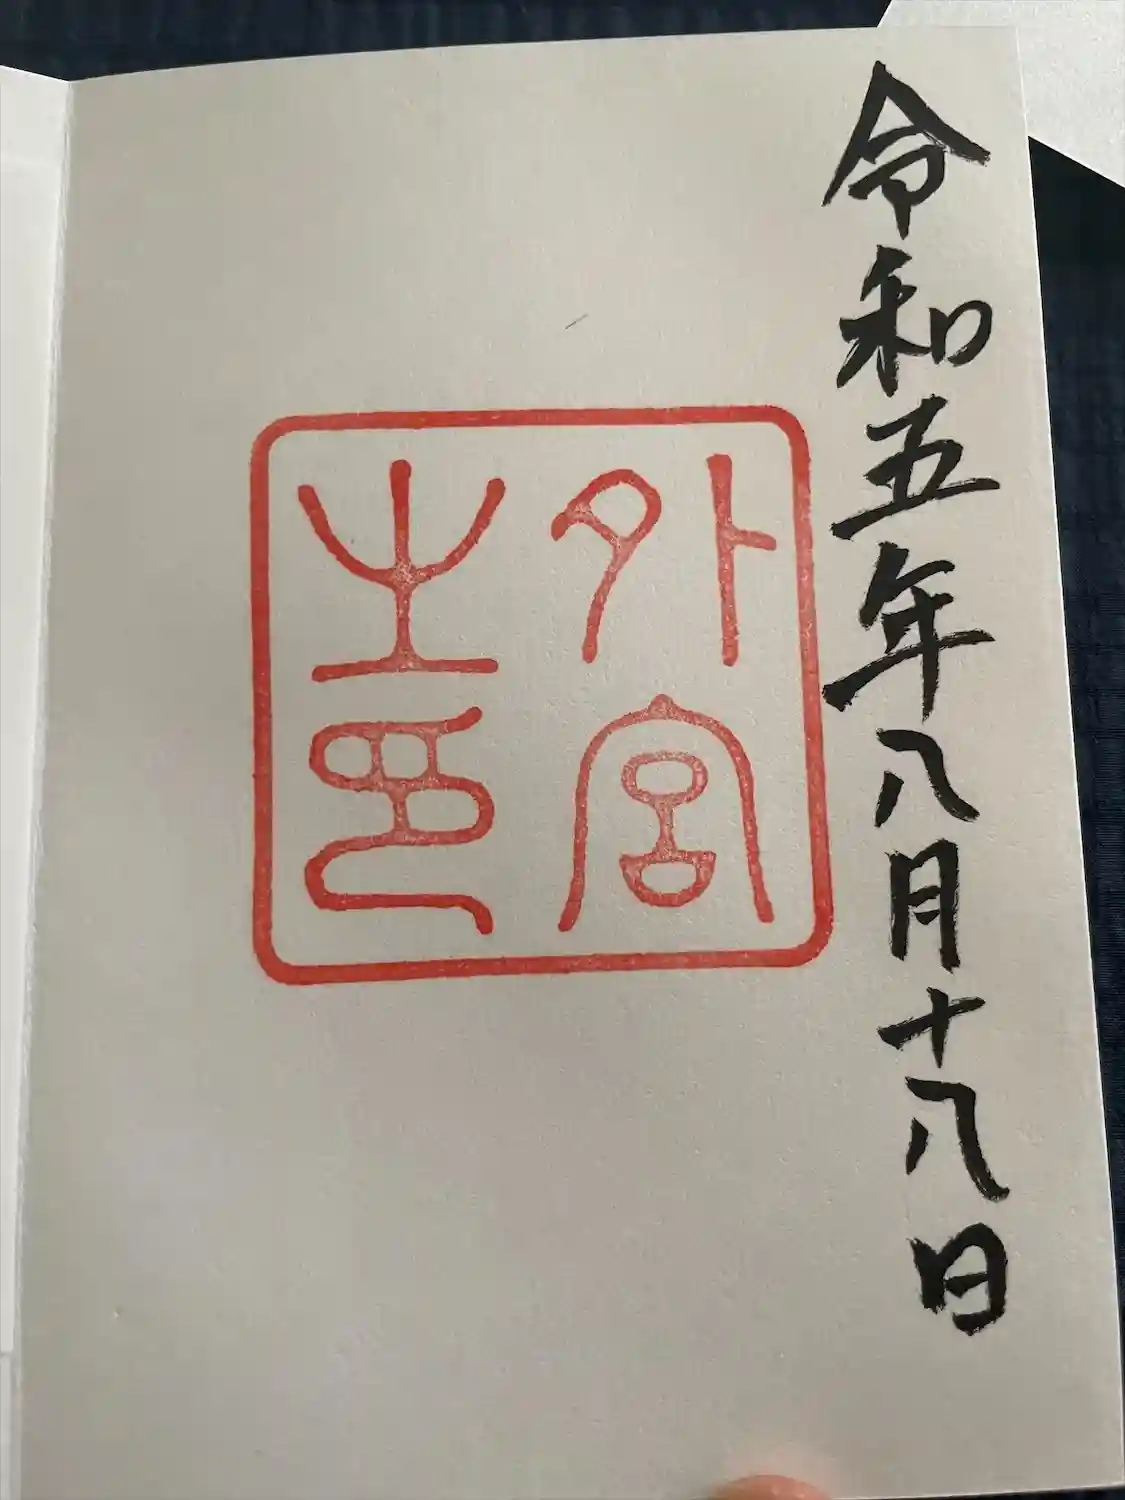 令和五年八月十八日
外宮
之印